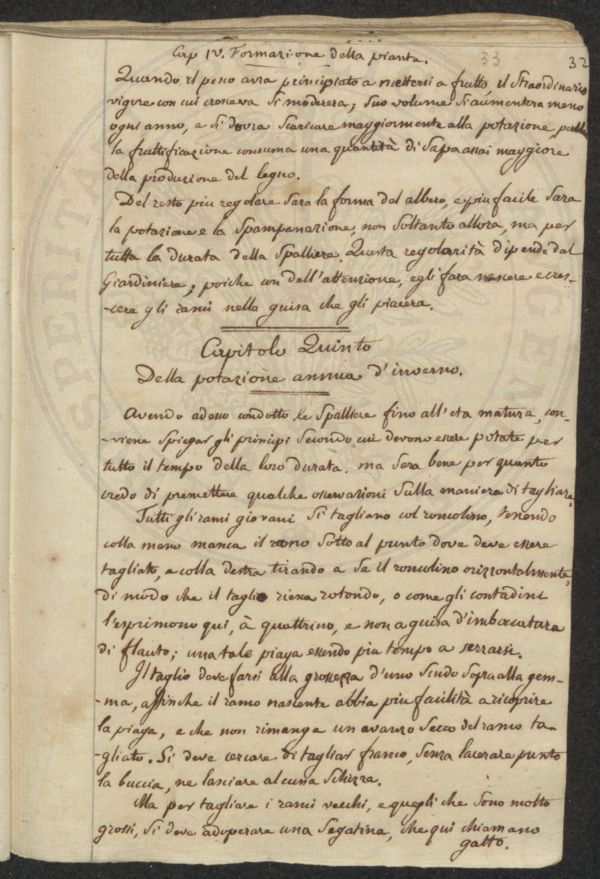 Cap IV. Formazione della pianta.
33
32
Quando il pesco avra principiato a mettersi a frutto il Straordinario
vigore con cui cresceva Si moderera; Suo volume S'aumentera meno
ogni anno, e Si dovra Scaricare maggiormente alla potazione, perchè
la fruttificazione consuma una quantità di Sapa assai maggiore
della produzione del legno.
Del resto piu regolare Sara la forma dal albero, e piu facile Sara
la potazione e la Spampanazione, non Soltanto allora, ma per
tutta la durata della Spalliera. Questa regolarità dipende dal
Giardiniere; poiche con dell'attenzione, egli fara nascere e cres-
-cere gli rami nella guisa che gli piacera.
Capitolo Quinto
Della potazione annua d'inverno.
Avendo adesso condotto le Spalliere fino all'eta matura, con-
-viene Spiegar gli principi Secondo cui devono essere potate per
tutto il tempo della loro durata. ma Sara bene per quanto
credo di premettere qualche osservazioni Sulla maniera di tagliare.
Tutti gli rami giovani Si tagliano col roncolino, tenendo
colla mano manca il ramo Sotto al punto dove deve essere
tagliato, e colla destra tirando a Se il roncolino orizzontalmente,
di modo che il taglio riesca rotondo, o come gli contadini
l'esprimono qui, à quattrino, e non a guisa d'imboccatura
di flauto; una tale piaga essendo piu tempo a serrarsi.
Il taglio deve farsi alla grossezza d'uno Scudo Sopra alla gem-
-ma, affinche il ramo nascente abbia piu facilità a ricoprire
la piaga, e che non rimanga un avanzo Secco del ramo ta-
-gliato. Si deve cercare di tagliar franco, Senza lacerare punto
la buccia, ne lasciare alcuna Schizza.
Ma per tagliare i rami vecchi, e quegli che Sono molto
grossi, Si deve adoperare una Segatina, che qui chiamano
gatto.